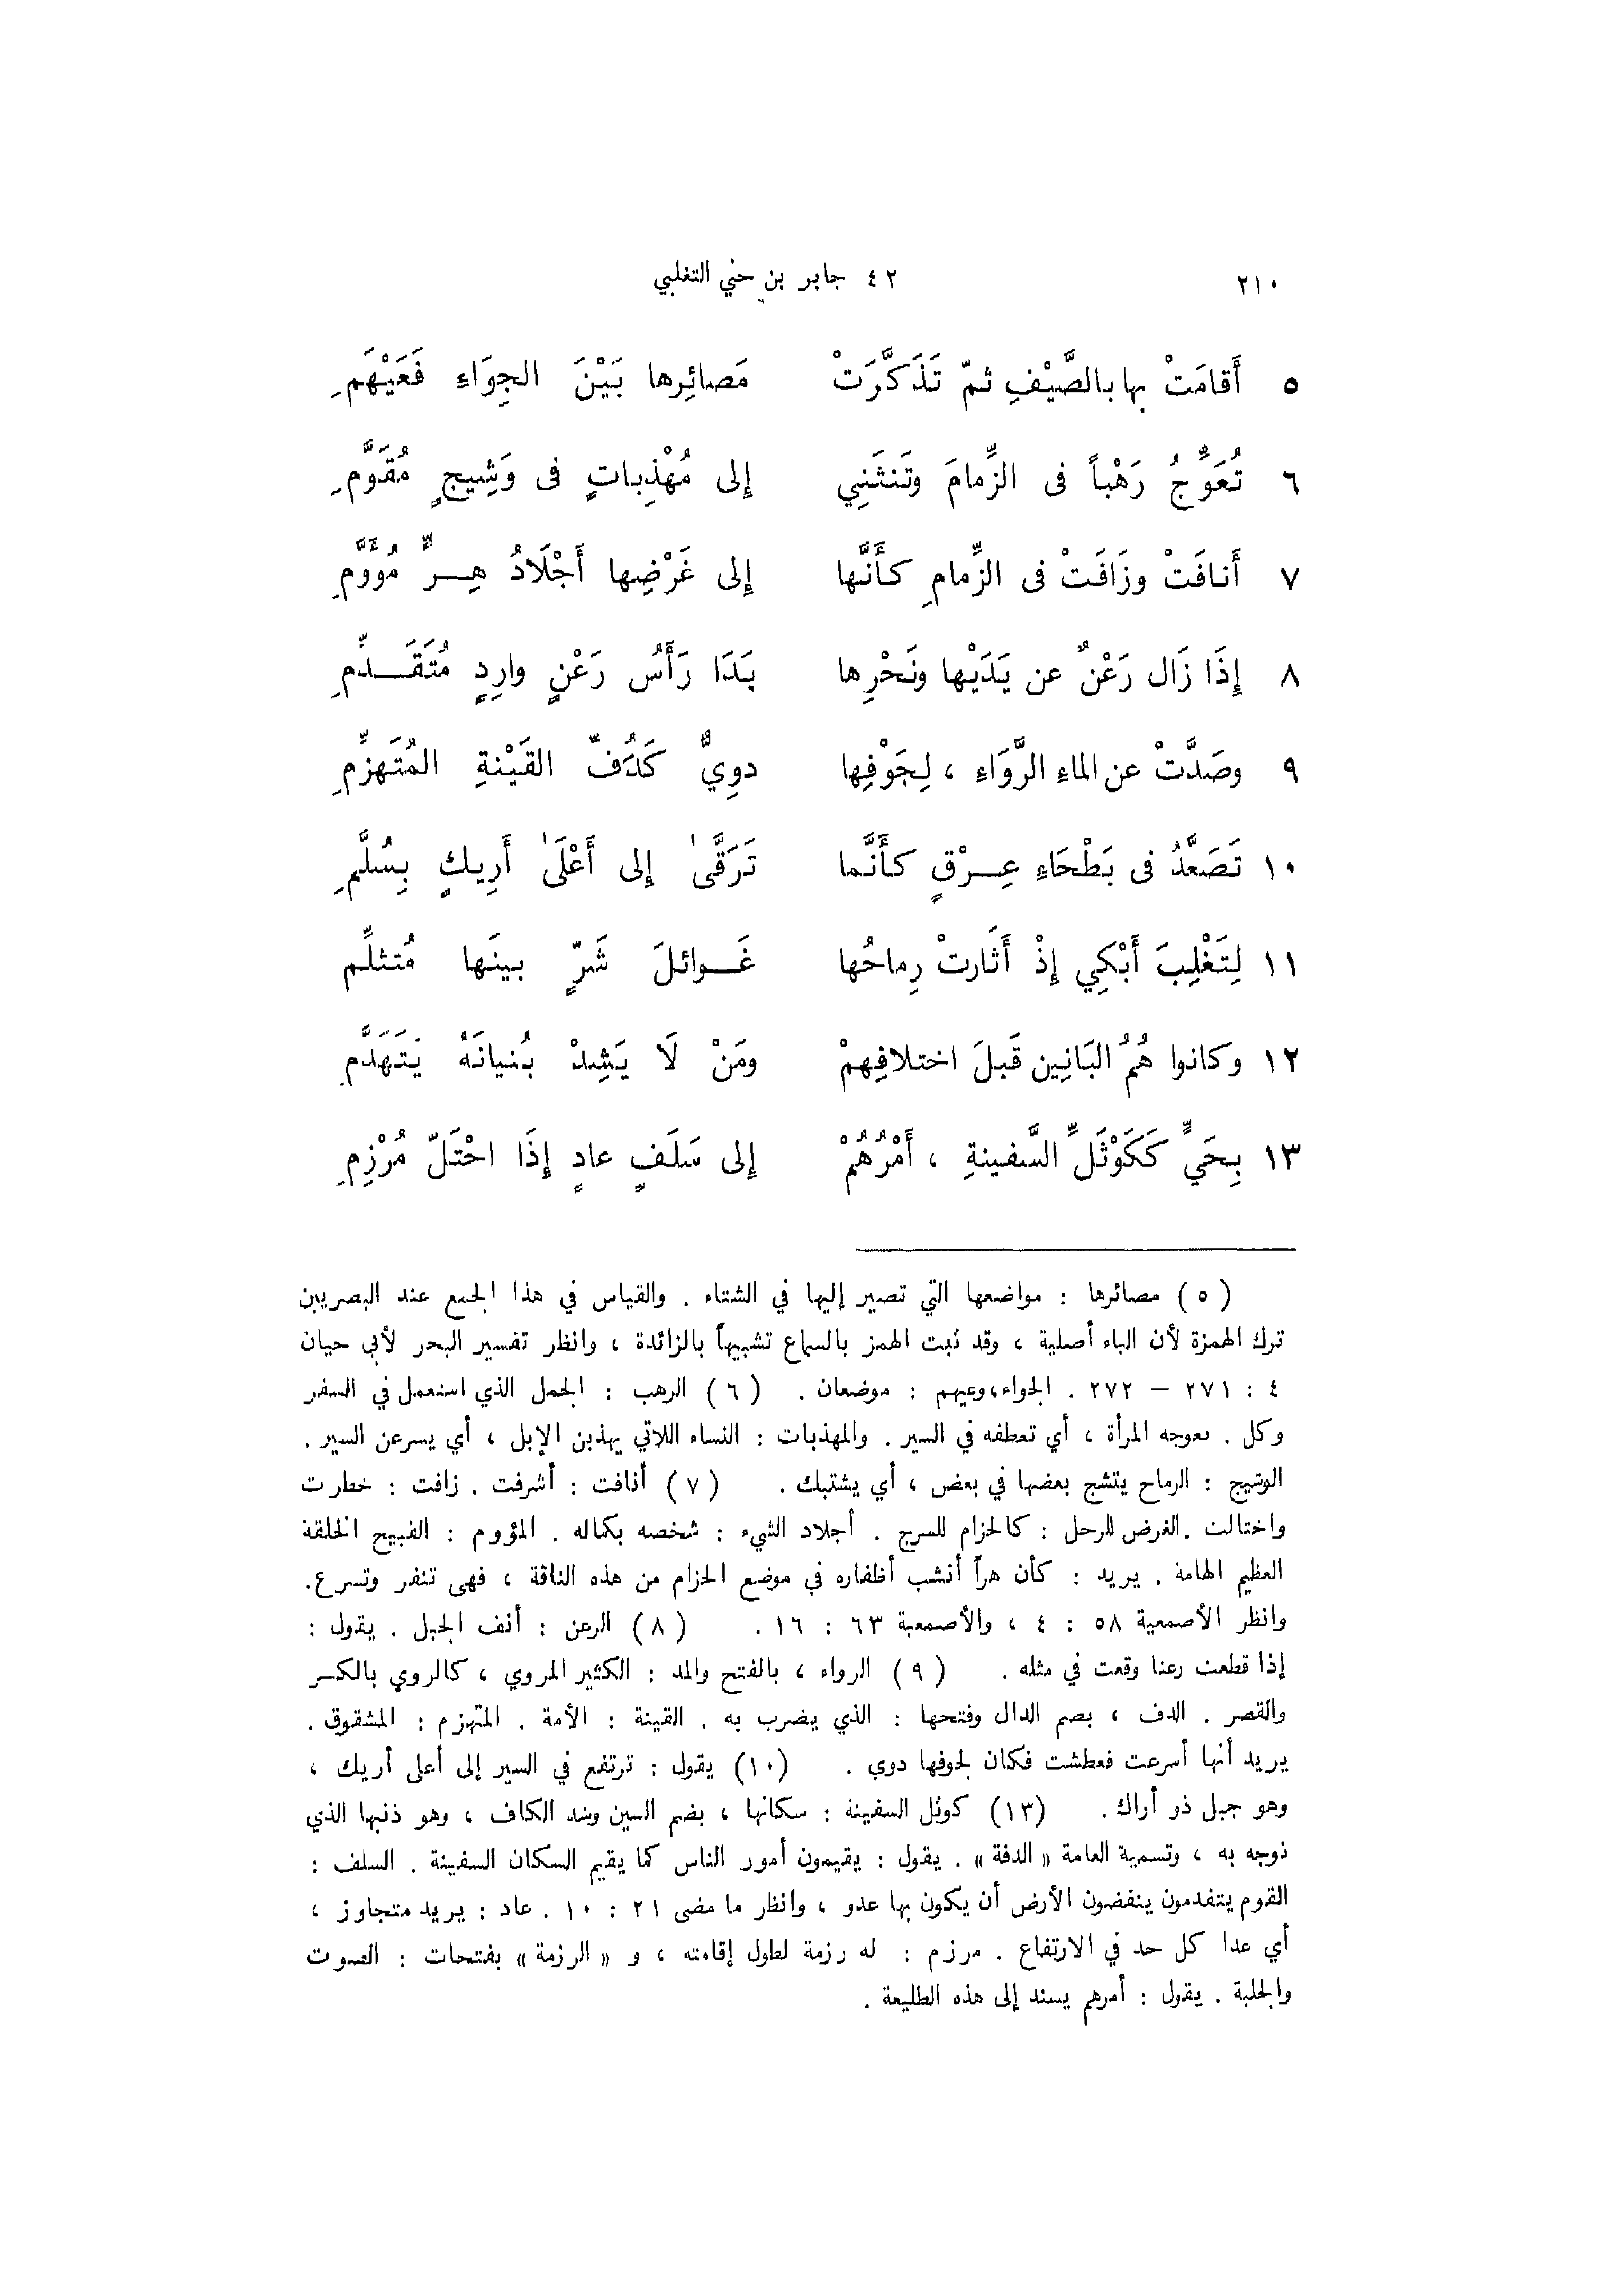 ٢١٠ ٤٢ جابر بن حني التغلبي
٥ أَقامَتْ بها بالصَّيْفِ ثمّ تَذَكَّرَتْ مَصائِرها بَيْنَ الجِوَاءِ فَعَيْهَمِ
٦ تُعَوِّجُ رَهْباً فى الزِّمامَ وتَنثَنِي إِلى مُهْذِباتٍ فى وَشِيجٍ مُقَوَّمِ
٧ أَنافَتْ وزَافَتْ فى الزِّمامِ كأَنَّها إِلى غَرْضِها أَجْلَادُ هِرٍّ مُؤَوَّمِ
٨ إِذَا زَال رَعْنٌ عن يَدَيْها ونَحْرِها بَدَا رَأْسُ رَعْنٍ وارِدٍ مُتَقَدِّمِ
٩ وصَدَّتْ عن الماءِ الرَّوَاءِ ، لِجَوْفِها دوِيٌّ كَدُفِّ القَيْنةِ المُتَهزِّمِ
١٠ تَصَعَّدُ فى بَطْحَاءِ عِرْقٍ كأَنَّما تَرَقَّىٰ إِلى أَعْلَىٰ أَرِيكٍ بِسُلَّمِ
١١ لِتَغْلِبَ أَبْكِي إِذْ أَثَارتْ رِماحُها غَوائلَ شَرٍّ بينَها مُتثلِّم
١٢ وكانوا هُمُ البَانِين قَبلَ اختلافِهمْ ومَنْ لَا يَشِدْ بُنيانَهُ يَتَهَدَّمِ
١٣ بِحَيٍّ كَكَوْثَلِّ السَّفينةِ ، أَمْرُهُمْ إلى سَلَفٍ عادٍ إِذَا احْتَلّ مُرْزِمِ
( ٥ ) مصائرها : مواضعها التي تصير إليها في الشتاء . والقياس في هذا الجمع عند البصريين
ترك الهمزة لأن الياء أصلية ، وقد ثبت الهمز بالسماع تشبيهاً بالزائدة ، وانظر تفسير البحر لأبي حيان
٤ : ٢٧١ – ٢٧٢ . الجواء، وعيهم : موضعان . ( ٦ ) الرهب : الجمل الذي استعمل في السفر
وكل . تعوجه المرأة ، أي تعطفه في السير . والمهذبات : النساء اللاتي يهذبن الإبل ، أي يسرعن السير .
الوشيج : الرماح يتشج بعضها في بعض ، أي يشتبك . ( ٧ ) أنافت : أشرفت . زافت : خطرت
واختالت . الغرض للرحل : كالحزام للسرج . أجلاد الشيء : شخصه بكماله . المؤوم : القبيح الخلقة
العظيم الهامة . يريد : كأن هراً أنشب أظفاره في موضع الحزام من هذه الناقة ، فهى تنفر وتسرع.
وانظر الأصمعية ٥٨ : ٤ ، والأصمعية ٦٣ : ١٦ . ( ٨ ) الرعن : أنف الجبل . يقول :
إذا قطعت رعنا وقعت في مثله . ( ٩ ) الرواء ، بالفتح والمد : الكثير المروي ، كالروي بالكسر
والقصر . الدف ، بضم الدال وفتحها : الذي يضرب به . القينة : الأمة . المتهزم : المشقوق .
يريد أنها أسرعت فعطشت فكان لجوفها دوي . (١٠) يقول : ترتفع في السير إلى أعلى أريك ،
وهو جبل ذو أراك . (١٣) كوثل السفينة : سكانها ، بضم السين وشد الكاف ، وهو ذنبها الذي
توجه به ، وتسمية العامة « الدفة » . يقول : يقيمون أمور الناس كما يقيم السكان السفينة . السلف :
القوم يتقدمون ينفضون الأرض أن يكون بها عدو ، وانظر ما مضى ٢١ : ١٠ . عاد : يريد متجاوز ،
أي عدا كل حد في الارتفاع . مرزم : له رزمة لطول إقامته ، و « الرزمة » بفتحات : الصوت
والجلبة . يقول : أمرهم يسند إلى هذه الطليعة .